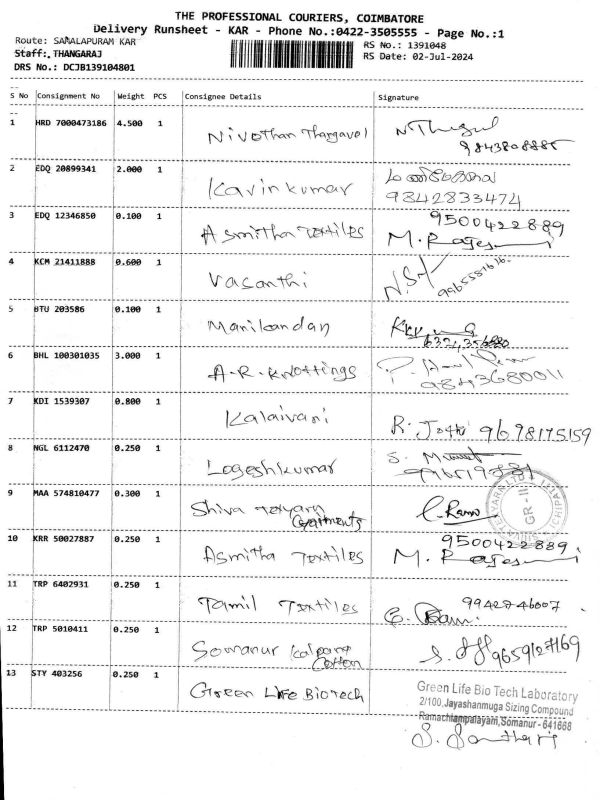 THE PROFESSIONAL COURIERS, COIMBATORE
Delivery Runsheet - KAR - Phone No.:0422-3505555 - Page No.:1
Route: SAMALAPURAM KAR
RS No.: 1391048
Staff: THANGARAJ
RS Date: 02-Jul-2024
DRS No.: DCJB139104801
S No Consignment No Weight PCS Consignee Details Signature
1 HRD 7000473186 4.500 1 Nivothan Thangavel
9843808885
2 EDQ 20899341 2.000 1 Kavinkumar
9842833474
3 EDQ 12346850 0.100 1 Asmitha Textiles 9500422889
M. Rages
4 KCM 21411888 0.600 1 Vasanthi
5 BTU 203586 0.100 1 Manikandan
6 BHL 100301035 3.000 1 A.R. Knottings
9843680011
7 KDI 1539307 0.800 1 Kalaivani R. Jothi 9698175159
8 NGL 6112470 0.250 1 Logeshkumar
9 MAA 574810477 0.300 1 Shiva Texyarn
Garments
GR-II
10 KRR 50027887 0.250 1 Asmitha Textiles 9500422889
M. Rages
11 TRP 6402931 0.250 1 Tamil Textiles 9942746007
12 TRP 5010411 0.250 1 Somanur Kalpana
Cotton
9659127169
13 STY 403256 0.250 1 Green Life Biotech
Green Life Bio Tech Laboratory
2/100, Jayashanmuga Sizing Compound
Ramachiampalayam, Somanur - 641668